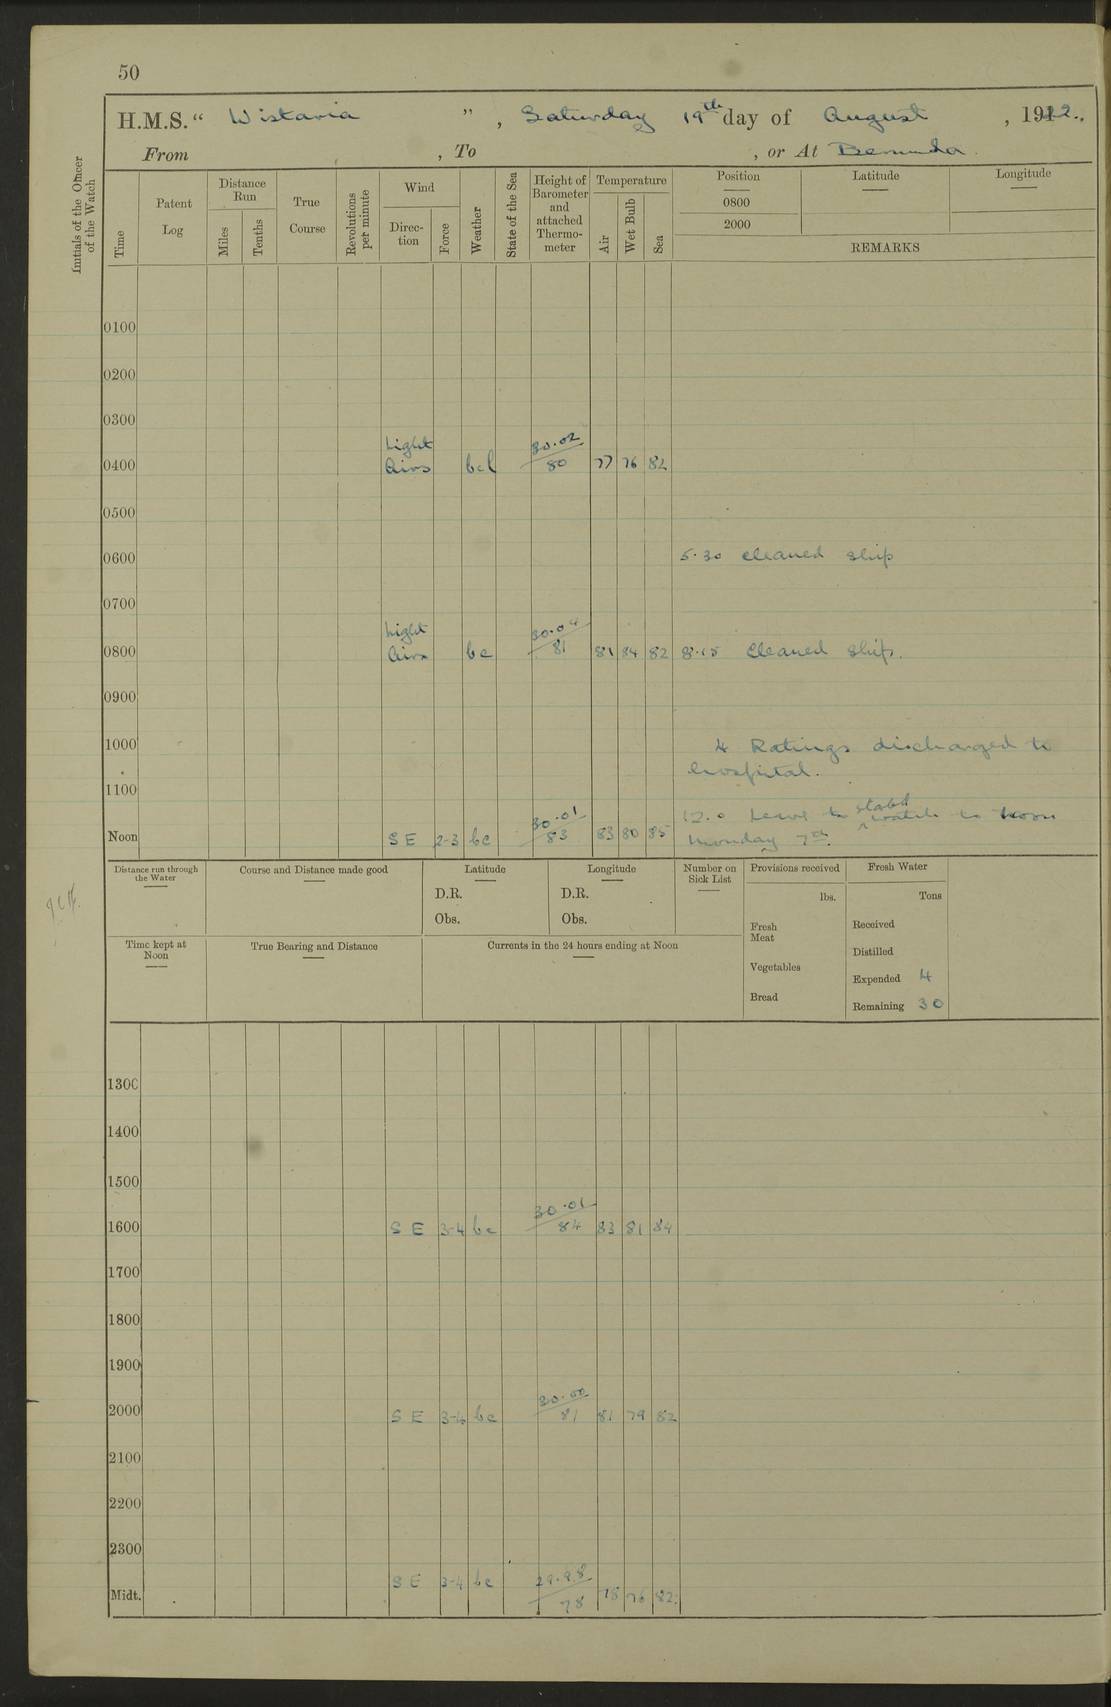 50
H.M.S. “ Wistaria ” , Saturday 19th day of August , 1922.
From , To , or At Bermuda
Initials of the Officer of the Watch
Time
Patent Log
Distance Run
Miles
Tenths
True Course
Revolutions per minute
Wind
Direc- tion
Force
Weather
State of the Sea
Height of Barometer and attached Thermo- meter
Temperature
Air
Wet Bulb
Sea
Position
0800
2000
Latitude
Longitude
REMARKS
0100
0200
0300
Light 30.02
0400 Airs bcl 80 77 76 82
0500
0600 5.30 cleaned ship
0700
Light 30.04
0800 Airs bc 81 81 84 82 8.15 Cleaned ship.
0900
1000 4 Ratings discharged to
hospital.
1100
30.01 12.0 Leave to stabd watch to noon
Noon SE 2-3 bc 83 83 80 85 Monday 7th.
Distance run through the Water
Course and Distance made good
Latitude
D.R.
Obs.
Longitude
D.R.
Obs.
Number on Sick List
Provisions received
lbs.
Fresh Meat
Vegetables
Bread
Fresh Water
Tons
Received
Distilled
Expended 4
Remaining 30
Time kept at Noon
True Bearing and Distance
Currents in the 24 hours ending at Noon
1300
1400
1500
30.01
1600 SE 3-4 bc 84 83 81 84
1700
1800
1900
30.00
2000 SE 3-4 bc 81 81 79 82
2100
2200
2300
29.98
Midt. SE 3-4 bc 78 78 76 82